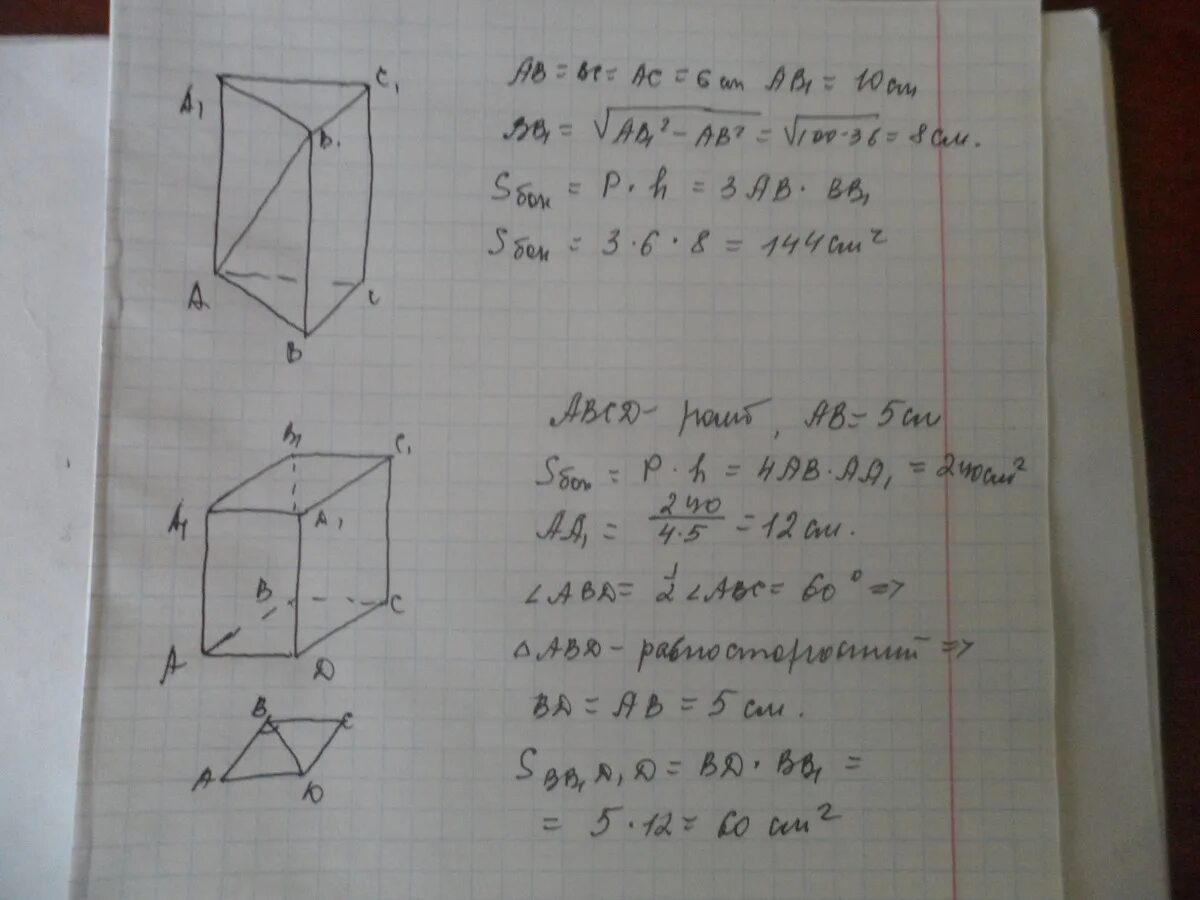 A₁
C₁
B₁
A
C
B
AB = BC = AC = 6 см AB₁ = 10 см
BB₁ = √(AB₁² - AB²) = √(100-36) = 8 см.
Sбок = P · h = 3 AB · BB₁
Sбок = 3 · 6 · 8 = 144 см²
B₁
C₁
A₁
Д₁
B
C
A
Д
B
C
A
D
ABCД - ромб, AB = 5 см
Sбок = P · h = 4AB · AA₁ = 240 см²
AA₁ = 240/4·5 = 12 см.
∠ABД = 1/2 ∠ABC = 60° =>
△ABД - равносторонний =>
BД = AB = 5 см.
S BB₁Д₁Д = BД · BB₁ =
= 5 · 12 = 60 см²